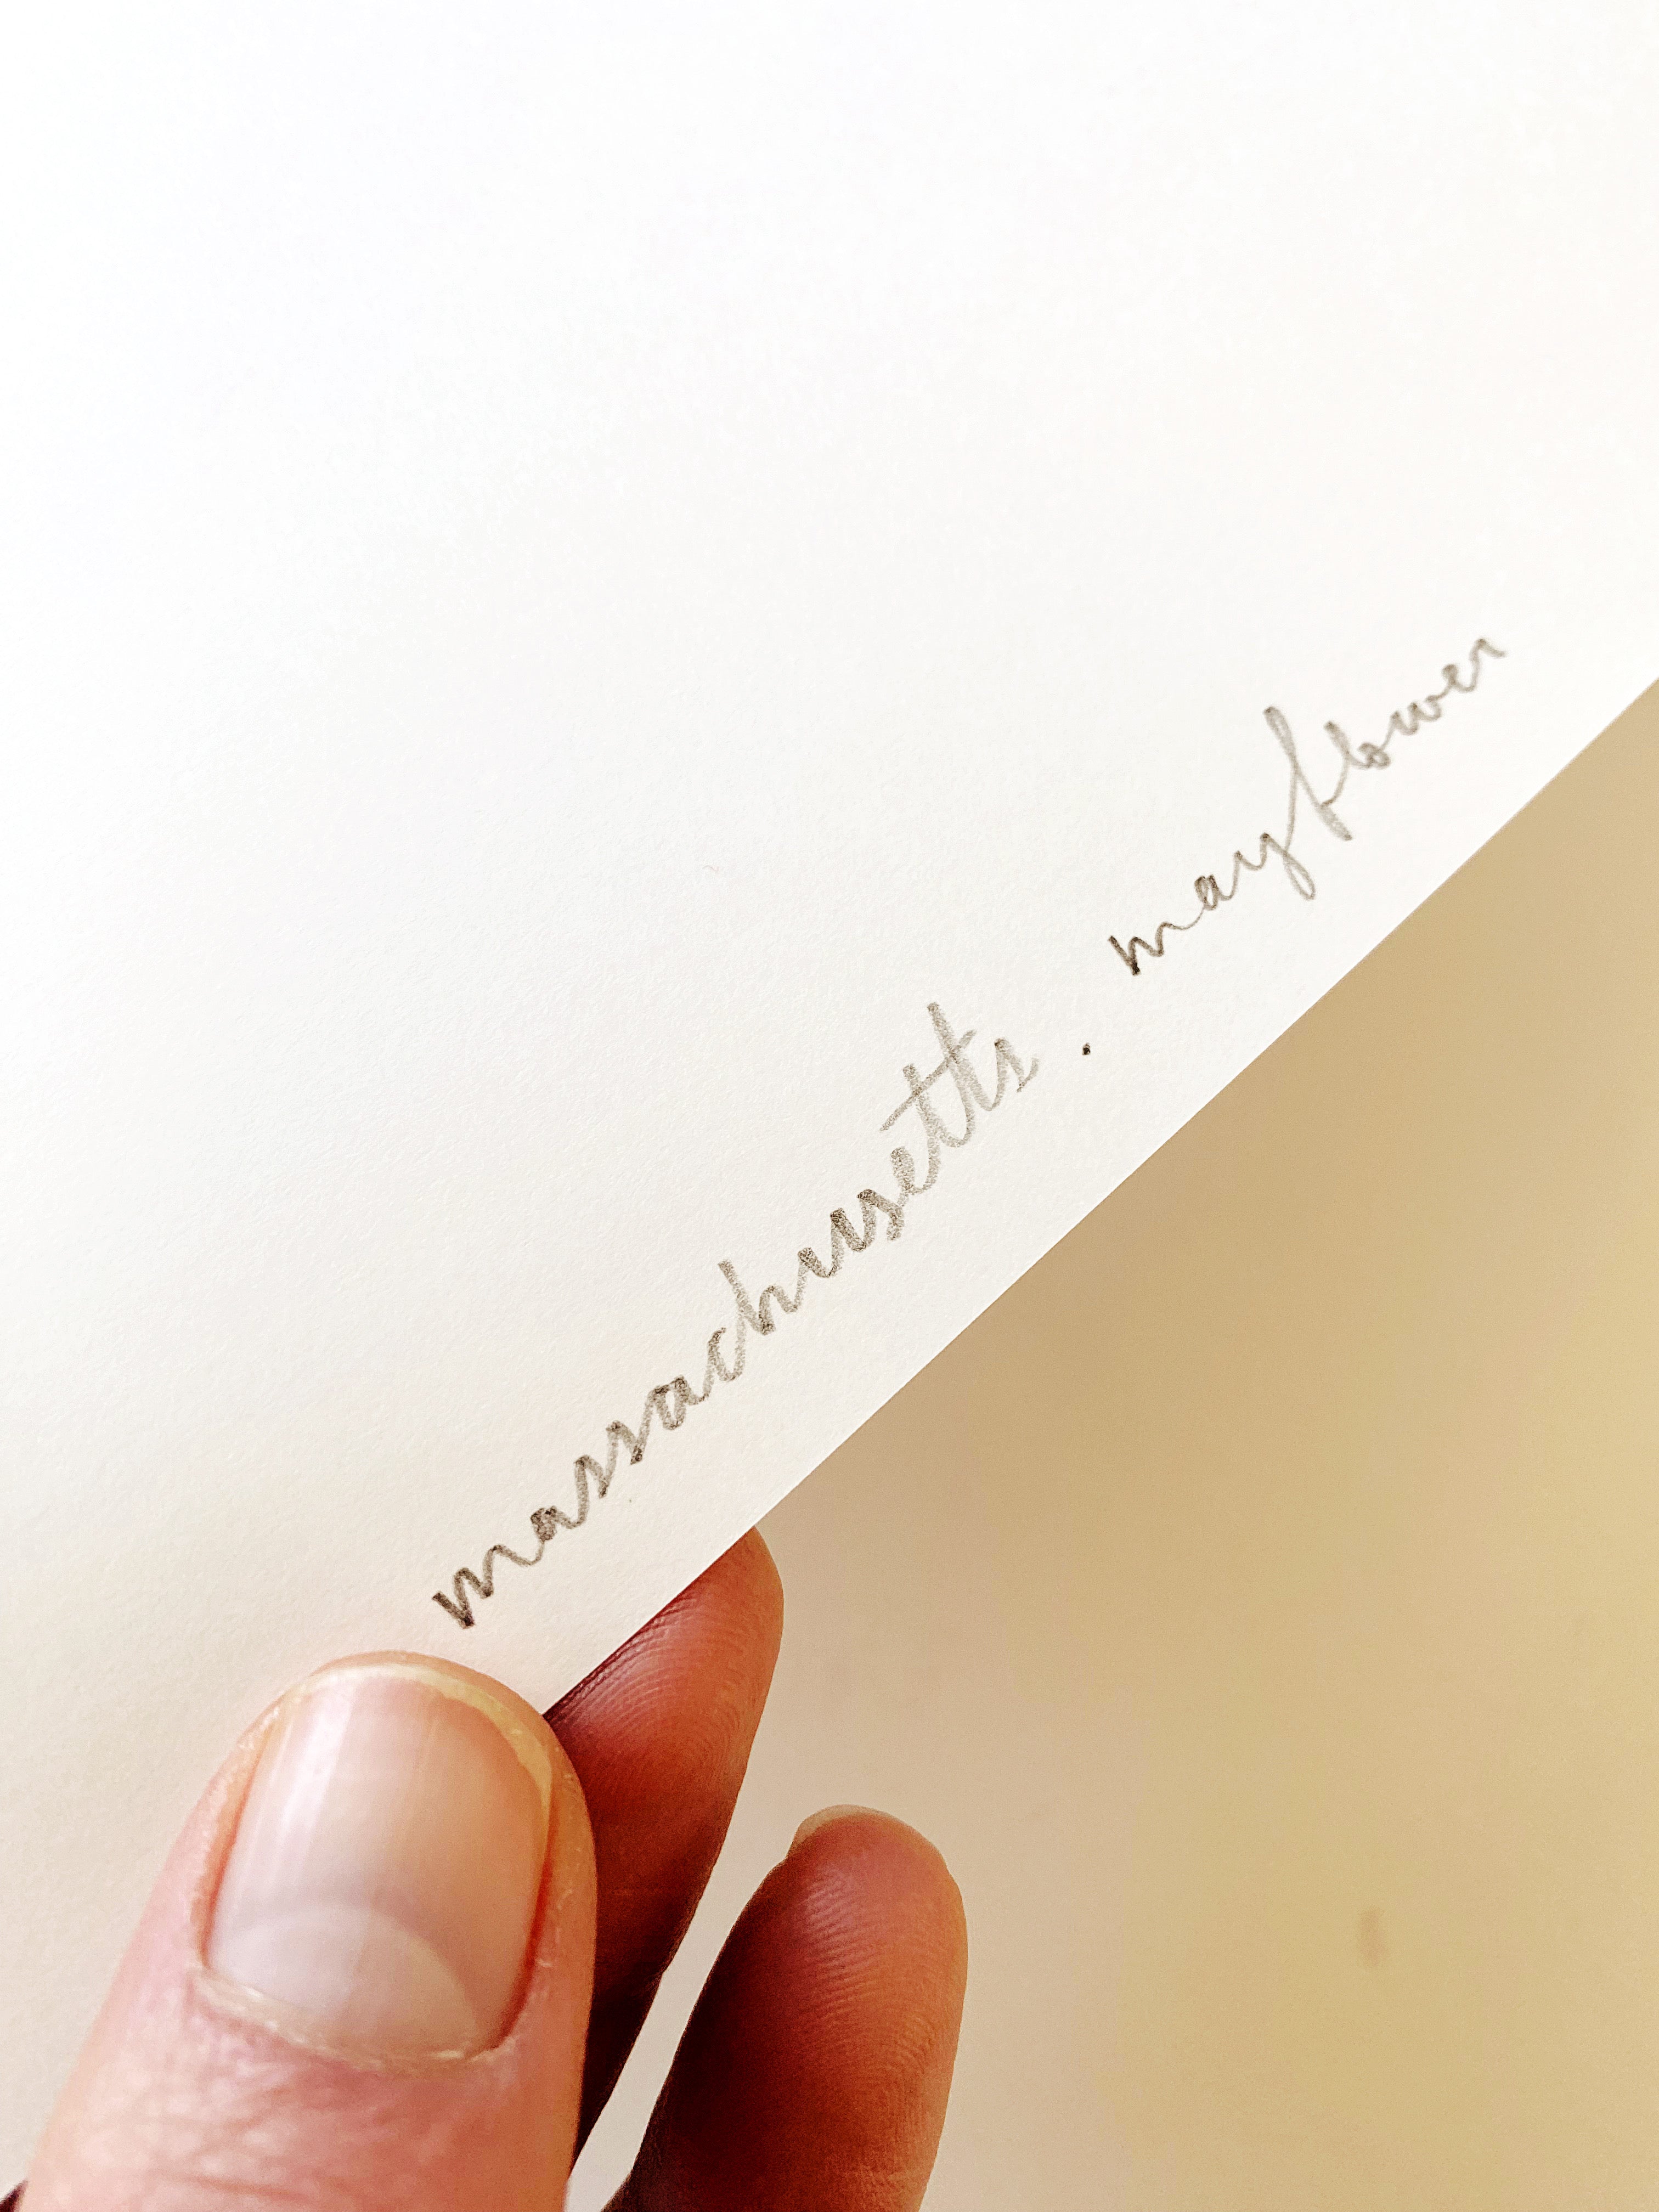 massachusetts . mayflower